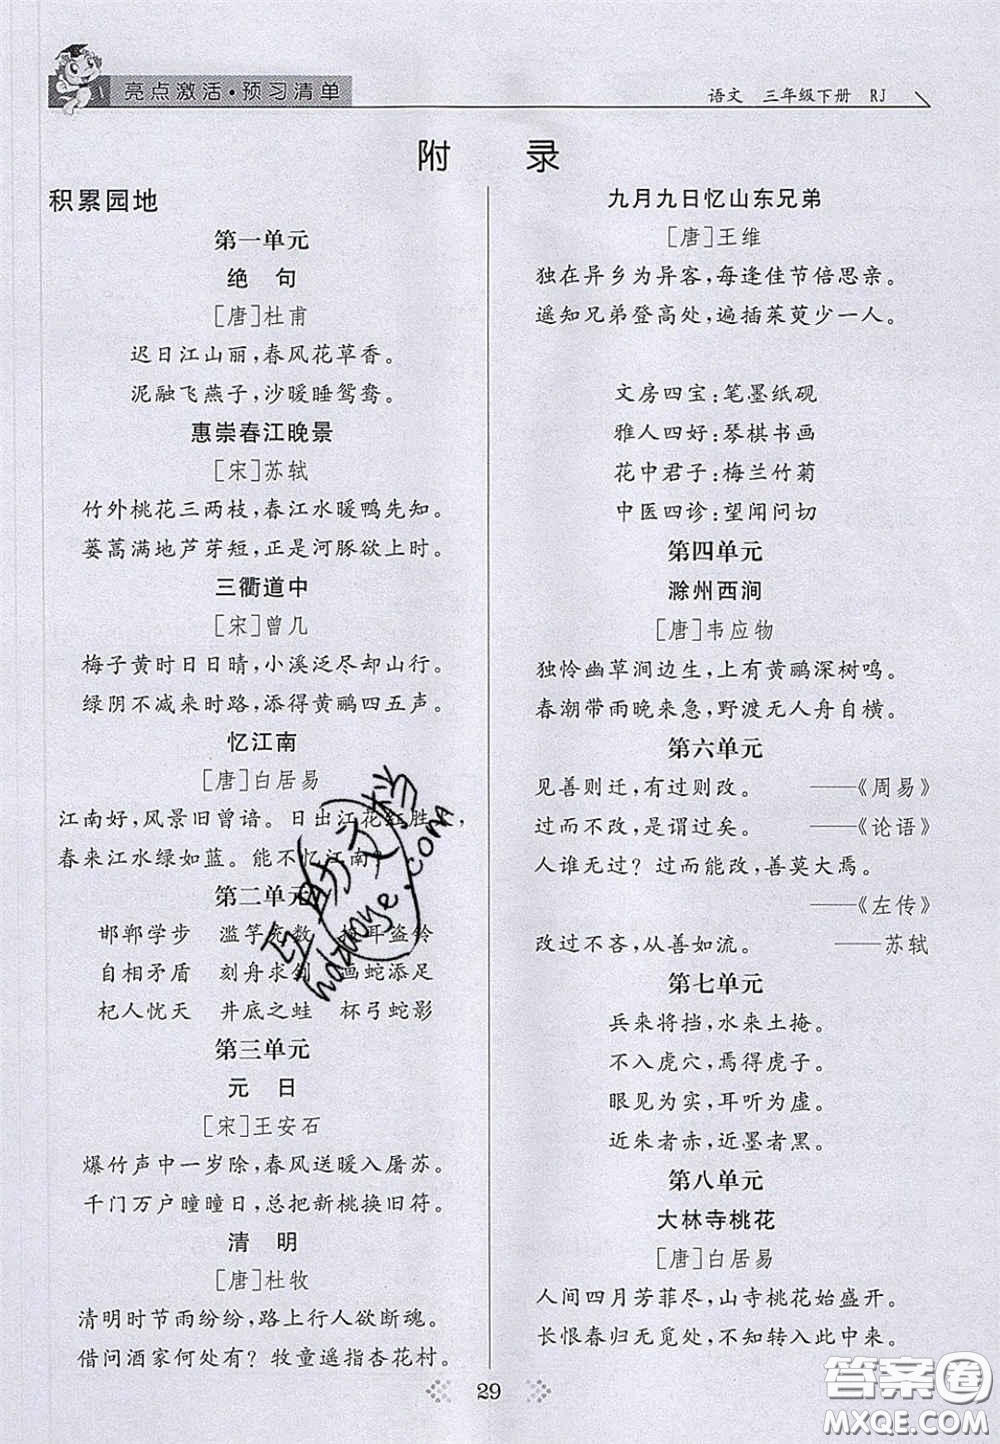 亮点激活·预习清单
语文 三年级下册 RJ
附 录
积累园地
第一单元
绝 句
[唐]杜甫
迟日江山丽,春风花草香。
泥融飞燕子,沙暖睡鸳鸯。
惠崇春江晚景
[宋]苏轼
竹外桃花三两枝,春江水暖鸭先知。
蒌蒿满地芦芽短,正是河豚欲上时。
三衢道中
[宋]曾几
梅子黄时日日晴,小溪泛尽却山行。
绿阴不减来时路,添得黄鹂四五声。
忆江南
[唐]白居易
江南好,风景旧曾谙。日出江花红胜 ,
春来江水绿如蓝。能不忆江南?
第二单元
邯郸学步 滥竽充数 耳盗铃
自相矛盾 刻舟求剑 画蛇添足
杞人忧天 井底之蛙 杯弓蛇影
第三单元
元 日
[宋]王安石
爆竹声中一岁除,春风送暖入屠苏。
千门万户曈曈日,总把新桃换旧符。
清 明
[唐]杜牧
清明时节雨纷纷,路上行人欲断魂。
借问酒家何处有?牧童遥指杏花村。
九月九日忆山东兄弟
[唐]王维
独在异乡为异客,每逢佳节倍思亲。
遥知兄弟登高处,遍插茱萸少一人。
文房四宝:笔墨纸砚
雅人四好:琴棋书画
花中君子:梅兰竹菊
中医四诊:望闻问切
第四单元
滁州西涧
[唐]韦应物
独怜幽草涧边生,上有黄鹂深树鸣。
春潮带雨晚来急,野渡无人舟自横。
第六单元
见善则迁,有过则改。 ——《周易》
过而不改,是谓过矣。 ——《论语》
人谁无过?过而能改,善莫大焉。
——《左传》
改过不吝,从善如流。 ——苏轼
第七单元
兵来将挡,水来土掩。
不入虎穴,焉得虎子。
眼见为实,耳听为虚。
近朱者赤,近墨者黑。
第八单元
大林寺桃花
[唐]白居易
人间四月芳菲尽,山寺桃花始盛开。
长恨春归无觅处,不知转入此中来。
29
答案圈
MXQE.COM